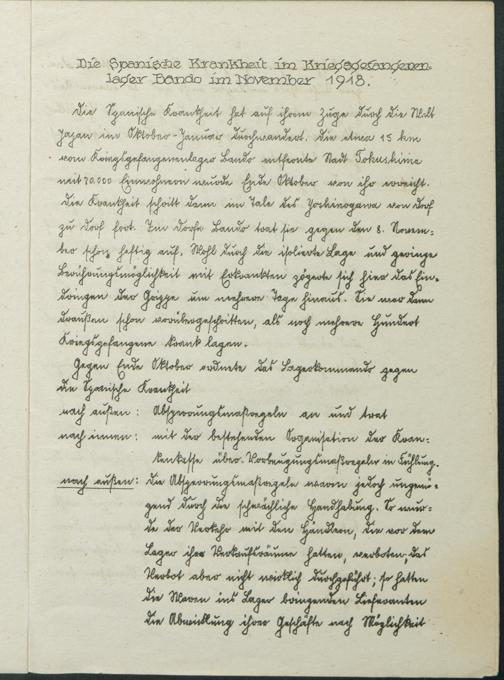 Die Spanische Krankheit im Kriegsgefangenen-
lager Bando im November 1918.
Die Spanische Krankheit hat auf ihrem Zuge durch die Welt
Japan im Oktober-Januar durchwandert. Die etwa 15 km
vom Kriegsgefangenenlager Bando entfernte Stadt Tokushima
mit 70.000 Einwohnern wurde Ende Oktober von ihr erreicht.
Die Krankheit schritt dann im Tale des Yoshinogawa von Dorf
zu Dorf fort. Im Dorfe Bando trat sie gegen den 8. Novem-
ber schon heftig auf. Wohl durch die isolierte Lage und geringe
Berührungsmöglichkeit mit Erkrankten zögerte sich hier das Ein-
dringen der Grippe um mehrere Tage hinaus. Sie war dann
draußen schon vorübergeschritten, als noch mehrere Hundert
Kriegsgefangene krank lagen.
Gegen Ende Oktober ordnete das Lagerkommando gegen
die Spanische Krankheit
nach außen: Absperrungsmaßregeln an und trat
nach innen: mit der bestehenden Organisation der Kran-
kenkasse über Vorbeugungsmaßregeln in Fühlung.
nach außen: Die Absperrungsmaßregeln waren jedoch ungenü-
gend durch die schwächliche Handhabung. Es wur-
de der Verkehr mit den Händlern, die vor dem
Lager ihre Verkaufsräume hatten, verboten, das
Verbot aber nicht wirklich durchgeführt; so hatten
die Waren ins Lager bringenden Lieferanten
die Abwicklung ihrer Geschäfte nach Möglichkeit